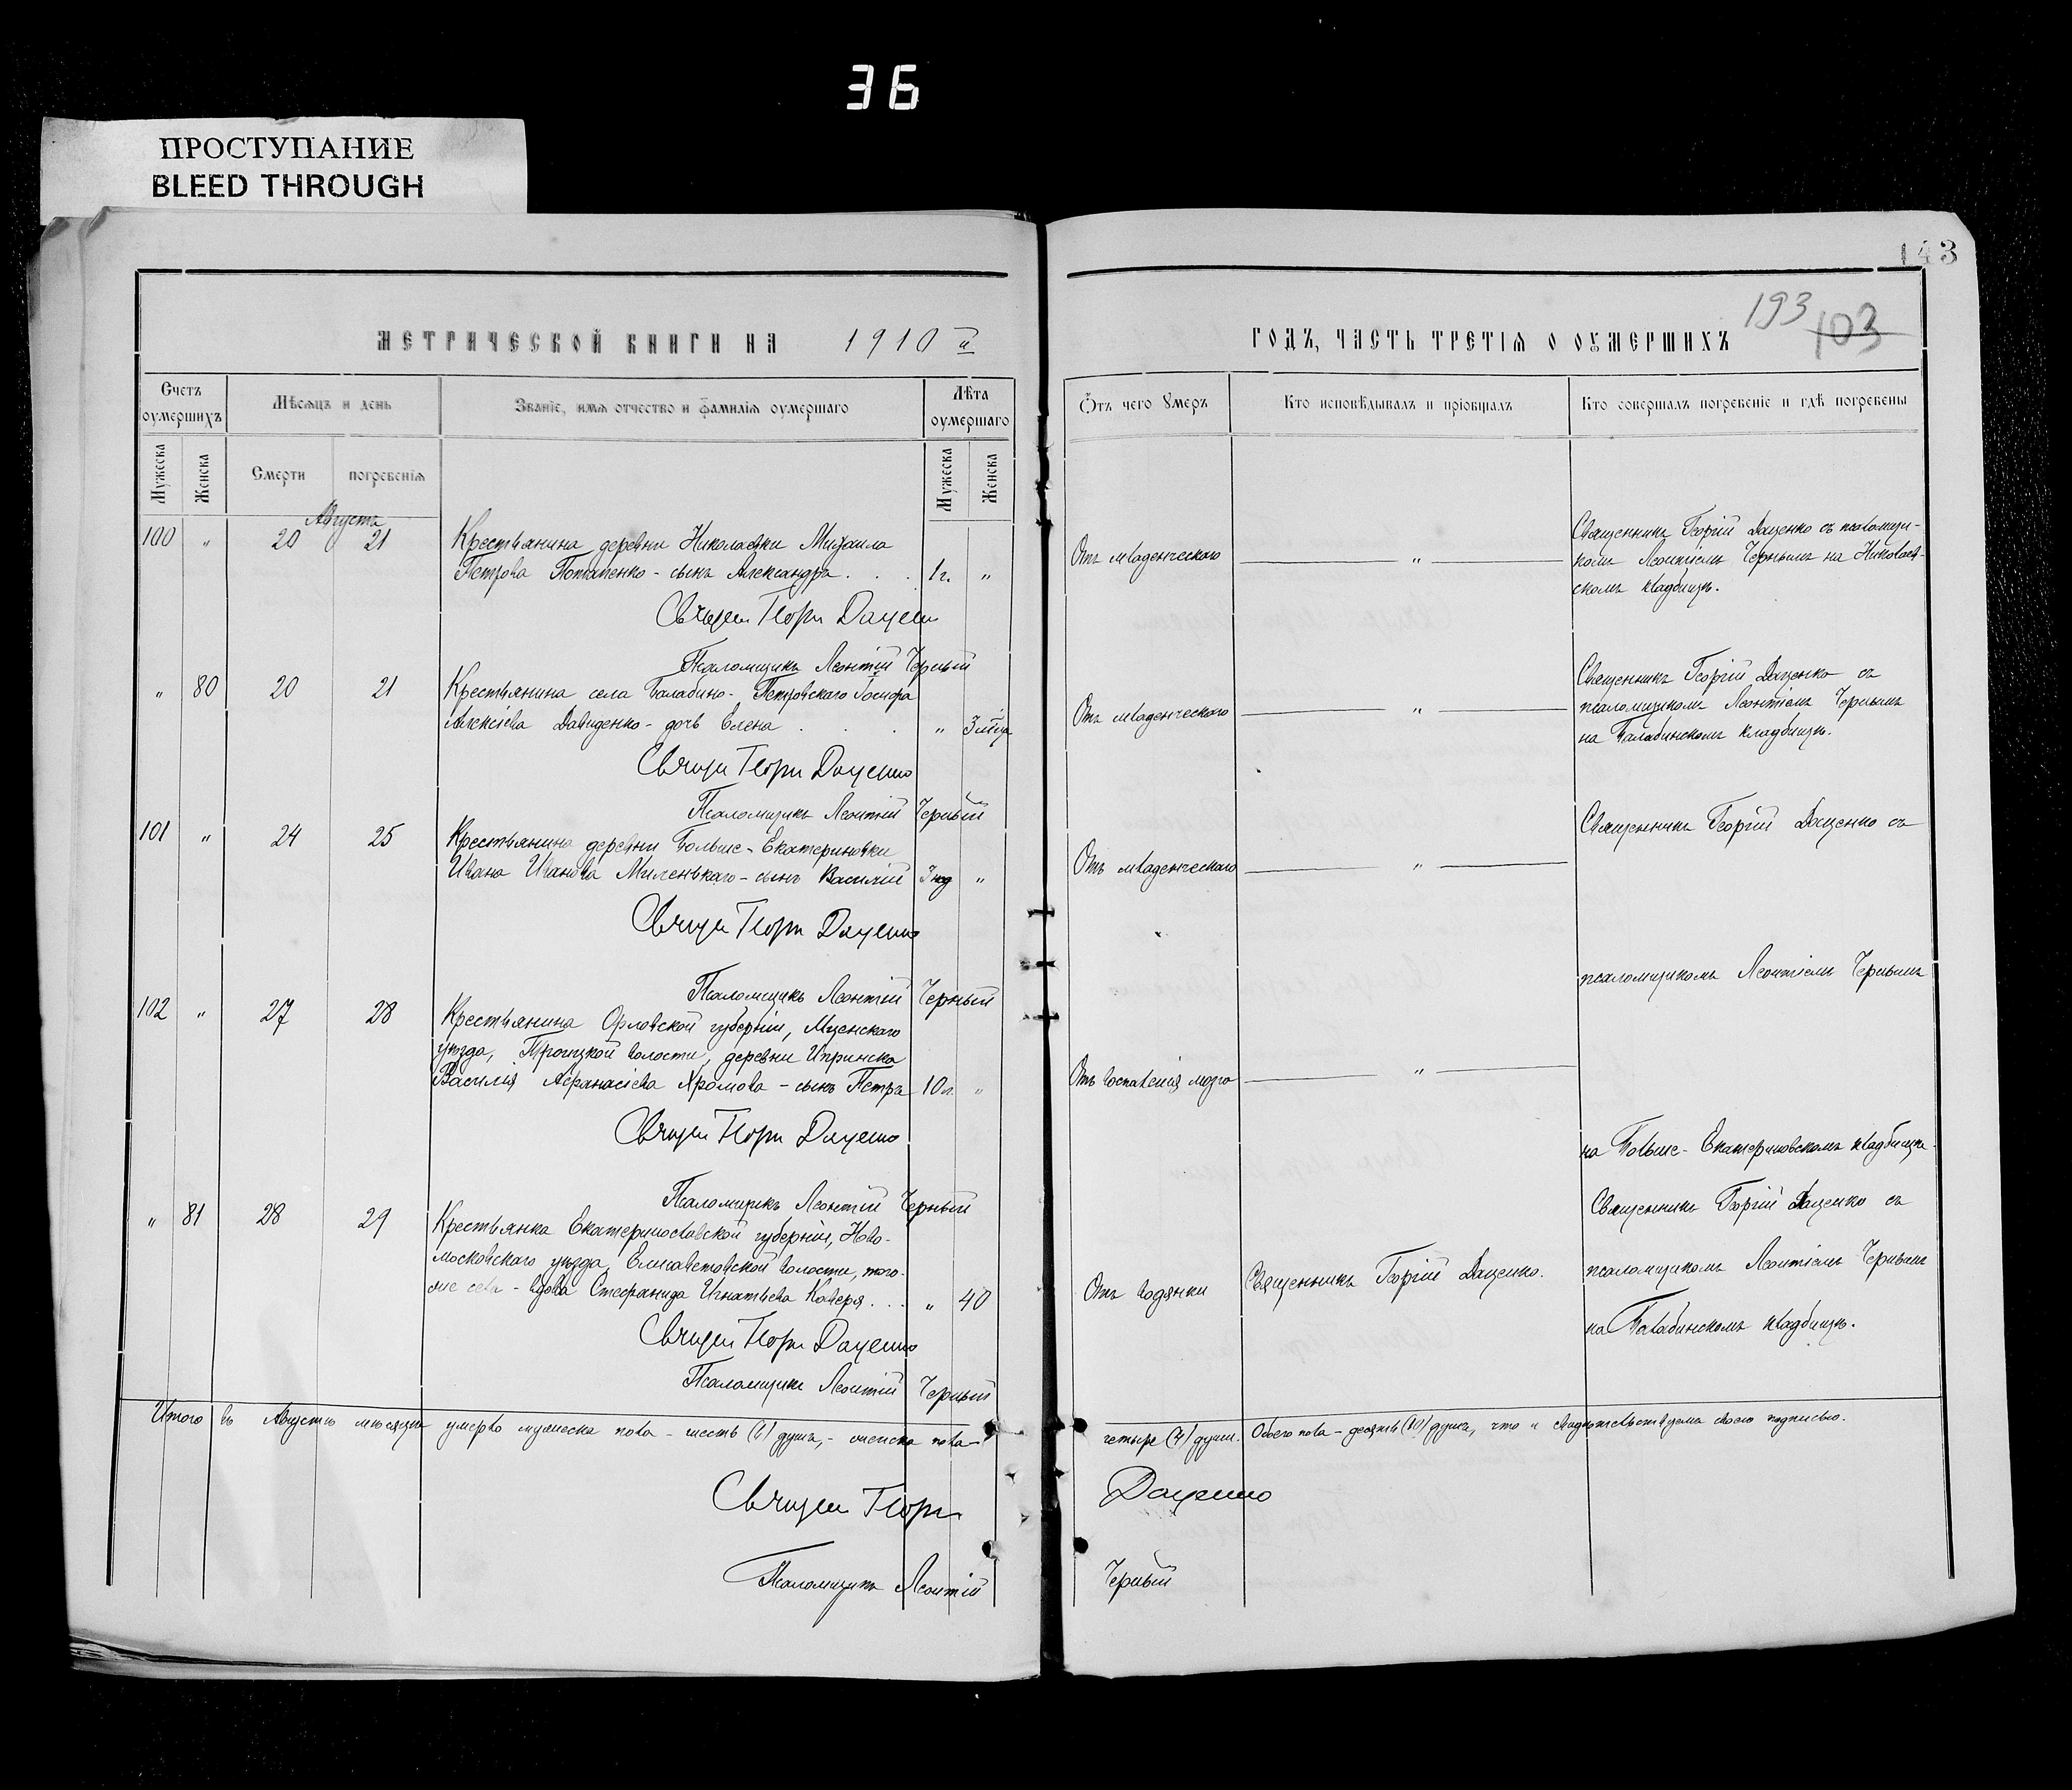 36
ПРОСТУПАНИЕ
BLEED THROUGH
143
193
103
МЕТРИЧЕСКОЙ КНИГИ НА 1910й
ГОДЪ, ЧАСТЬ ТРЕТІѦ О ОУМЕРШИХЪ
Счетъ оумершихъ
Мѣсѧцъ и день
Званіе, имѧ отчество и фамиліѧ оумершаго
Лѣта оумершаго
Ѿтъ чего Умеръ
Кто исповѣдывалъ и пріобщалъ
Кто совершалъ погребеніе и гдѣ погребены
Мужеска
Женска
Смерти
погребеніѧ
Мужеска
Женска
Августа
100 " 20 21
Крестьянина деревни Николаевки Михаила
Петрова Потапенко - сынъ Александръ . . . 1г. "
Отъ младенческаго
"
Священникъ Георгій Даценко съ псаломщи-
комъ Леонтіемъ Чернымъ на Николаев-
скомъ кладбищѣ.
Священ Георгій Даценко
Псаломщикъ Леонтій Черный
" 80 20 21
Крестьянина села Балабино-Петровскаго Іосифа
Алексіева Давиденко - дочь Елена . . . " 3 м-ца
Отъ младенческаго
"
Священникъ Георгій Даценко съ
псаломщикомъ Леонтіемъ Чернымъ
на Балабинскомъ кладбищѣ.
Священ Георгій Даценко
Псаломщикъ Леонтій Черный
101 " 24 25
Крестьянина деревни Больше-Екатериновки
Ивана Иванова Миленькаго - сынъ Василій 3 "
Отъ младенческаго
"
Священникъ Георгій Даценко съ
Священ Георгій Даценко
Псаломщикъ Леонтій Черный
псаломщикомъ Леонтіемъ Чернымъ
102 " 27 28
Крестьянина Орловской губерніи, Мценскаго
уѣзда, Троицкой волости, деревни
Василія Афанасіева Хромова - сынъ Петръ 10 л. "
Отъ воспаленія мозга
"
на Больше-Екатериновскомъ кладбищѣ.
Священ Георгій Даценко
Псаломщикъ Леонтій Черный
" 81 28 29
Крестьянка Екатеринославской губерніи, Ново-
московскаго уѣзда, Елисаветовской волости, того-
же села - вдова Стефанида Игнатьева Коверя . . . " 40
Отъ водянки
Священникъ Георгій Даценко.
Священникъ Георгій Даценко съ
псаломщикомъ Леонтіемъ Чернымъ
на Балабинскомъ кладбищѣ.
Священ Георгій Даценко
Псаломщикъ Леонтій Черный
Итого въ Августѣ мѣсяцѣ умерло мужеска пола - шесть (6) душъ, - женска пола -
четыре (4) души. Обоего пола - десять (10) душъ, что и свидѣтельствуемъ своею подписью.
Священ Георгій Даценко
Псаломщикъ Леонтій Черный